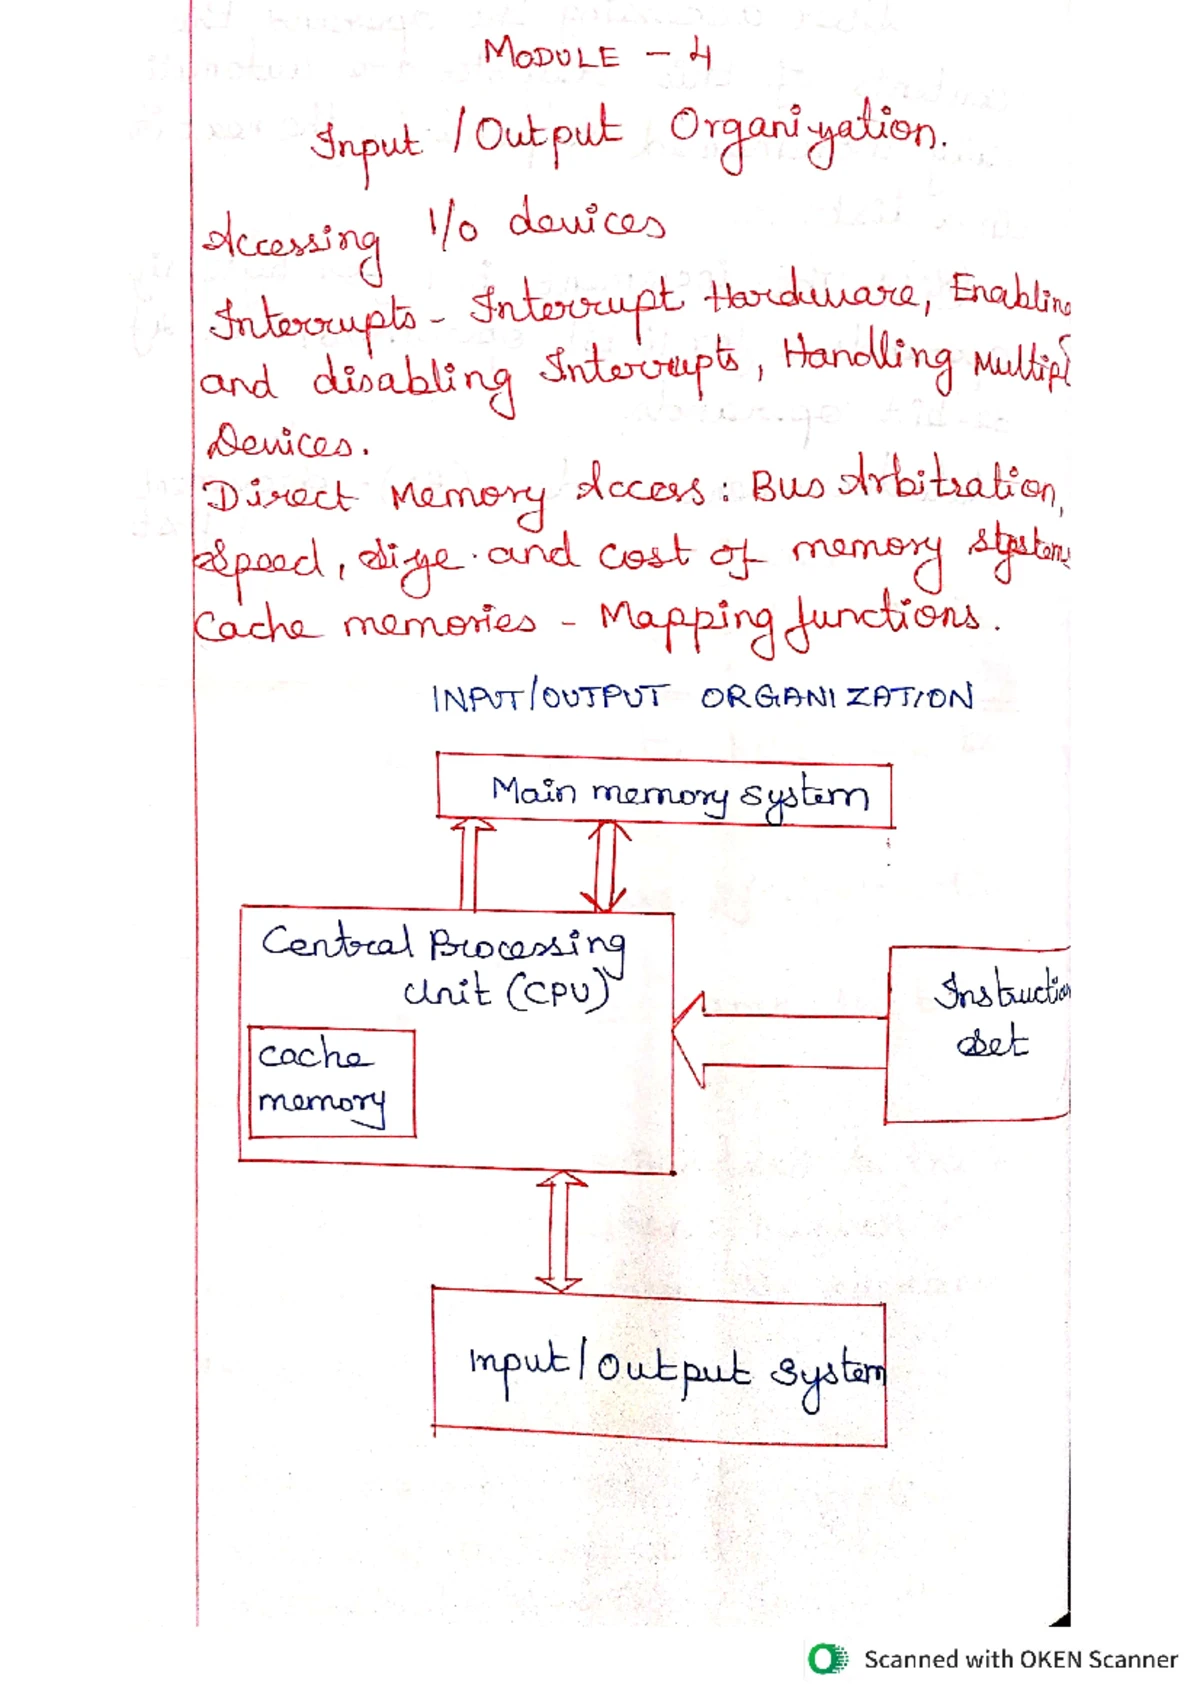 MODULE - 4
Input / Output Organization.
Accessing I/o devices
Interrupts - Interrupt Hardware, Enabling
and disabling Interrupts, Handling Multipl
Devices.
Direct Memory Access : Bus Arbitration,
Speed, size and cost of memory systems
Cache memories - Mapping functions.
INPUT/OUTPUT ORGANIZATION
Main memory system
Central Processing
Unit (CPU)
Instruction
Set
cache
memory
Input/Output System
Scanned with OKEN Scanner